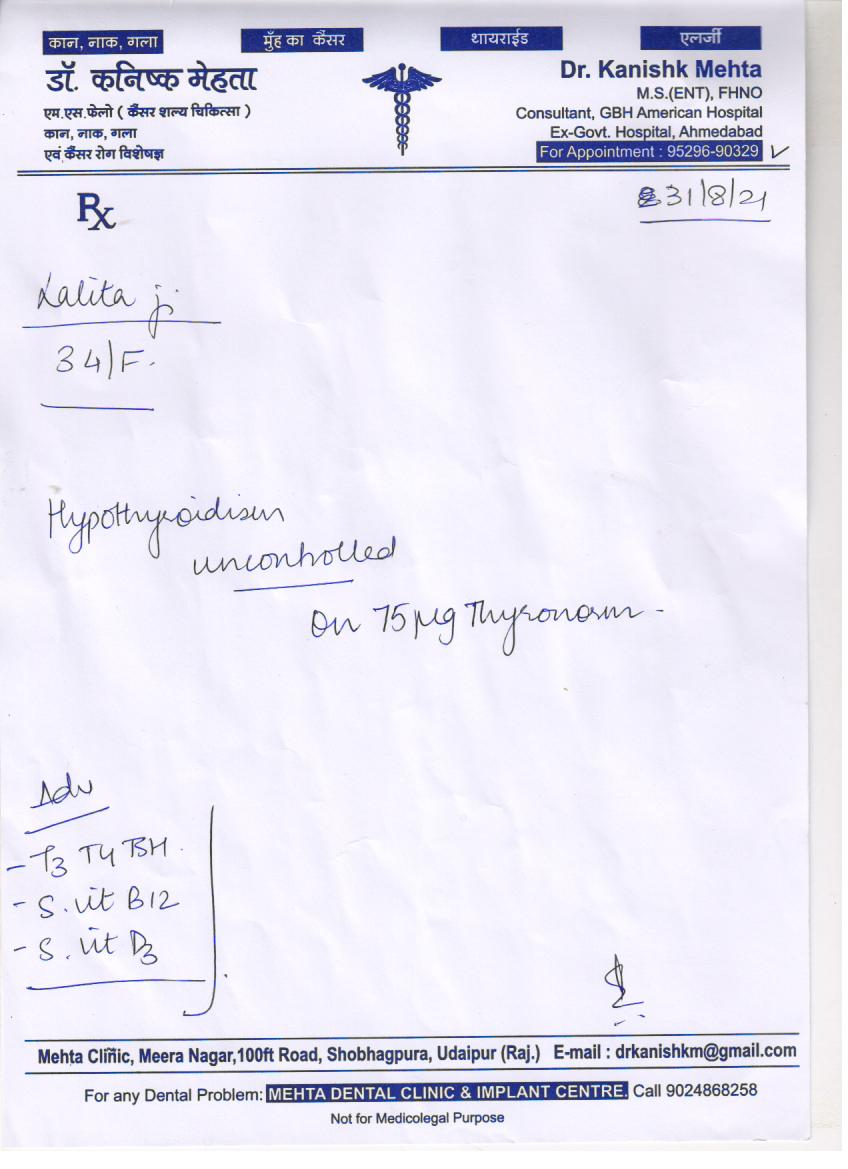 कान, नाक, गला
मुँह का कैंसर
थायराईड
एलर्जी
डॉ. कनिष्क मेहता
एम.एस.फेलो ( कैंसर शल्य चिकित्सा )
कान, नाक, गला
एवं कैंसर रोग विशेषज्ञ
Dr. Kanishk Mehta
M.S.(ENT), FHNO
Consultant, GBH American Hospital
Ex-Govt. Hospital, Ahmedabad
For Appointment : 95296-90329
Rx
31/8/21
Lalita ji
34/F.
Hypothyroidism
uncontrolled
on 75 µg Thyronorm -
Adv
- T3 T4 TSH
- S. vit B12
- S. vit D3
Mehta Clinic, Meera Nagar,100ft Road, Shobhagpura, Udaipur (Raj.) E-mail : drkanishkm@gmail.com
For any Dental Problem: MEHTA DENTAL CLINIC & IMPLANT CENTRE. Call 9024868258
Not for Medicolegal Purpose